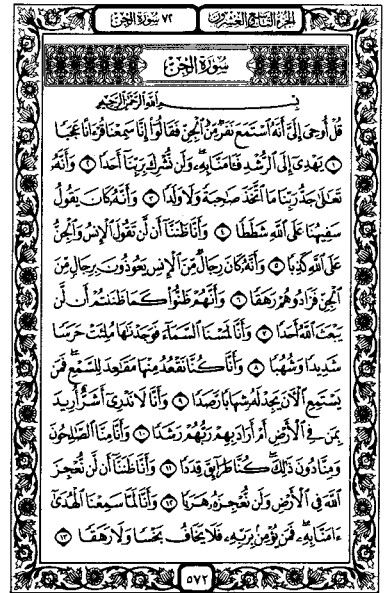 الجزء التاسع والعشرون
٧٢ سورة الجن
سُورَةُ الجِنّ
بِسْمِ ٱللَّهِ ٱلرَّحْمَٰنِ ٱلرَّحِيمِ
قُلْ أُوحِىَ إِلَىَّ أَنَّهُ ٱسْتَمَعَ نَفَرٌ مِّنَ ٱلْجِنِّ فَقَالُوٓا۟ إِنَّا سَمِعْنَا قُرْءَانًا عَجَبًا
١ يَهْدِىٓ إِلَى ٱلرُّشْدِ فَـَٔامَنَّا بِهِۦ وَلَن نُّشْرِكَ بِرَبِّنَآ أَحَدًا ٢ وَأَنَّهُۥ
تَعَٰلَىٰ جَدُّ رَبِّنَا مَا ٱتَّخَذَ صَٰحِبَةً وَلَا وَلَدًا ٣ وَأَنَّهُۥ كَانَ يَقُولُ
سَفِيهُنَا عَلَى ٱللَّهِ شَطَطًا ٤ وَأَنَّا ظَنَنَّآ أَن لَّن تَقُولَ ٱلْإِنسُ وَٱلْجِنُّ
عَلَى ٱللَّهِ كَذِبًا ٥ وَأَنَّهُۥ كَانَ رِجَالٌ مِّنَ ٱلْإِنسِ يَعُوذُونَ بِرِجَالٍ مِّنَ
ٱلْجِنِّ فَزَادُوهُمْ رَهَقًا ٦ وَأَنَّهُمْ ظَنُّوا۟ كَمَا ظَنَنتُمْ أَن لَّن
يَبْعَثَ ٱللَّهُ أَحَدًا ٧ وَأَنَّا لَمَسْنَا ٱلسَّمَآءَ فَوَجَدْنَٰهَا مُلِئَتْ حَرَسًا
شَدِيدًا وَشُهُبًا ٨ وَأَنَّا كُنَّا نَقْعُدُ مِنْهَا مَقَٰعِدَ لِلسَّمْعِ فَمَن
يَسْتَمِعِ ٱلْـَٔانَ يَجِدْ لَهُۥ شِهَابًا رَّصَدًا ٩ وَأَنَّا لَا نَدْرِىٓ أَشَرٌّ أُرِيدَ
بِمَن فِى ٱلْأَرْضِ أَمْ أَرَادَ بِهِمْ رَبُّهُمْ رَشَدًا ١٠ وَأَنَّا مِنَّا ٱلصَّٰلِحُونَ
وَمِنَّا دُونَ ذَٰلِكَ كُنَّا طَرَآئِقَ قِدَدًا ١١ وَأَنَّا ظَنَنَّآ أَن لَّن نُّعْجِزَ
ٱللَّهَ فِى ٱلْأَرْضِ وَلَن نُّعْجِزَهُۥ هَرَبًا ١٢ وَأَنَّا لَمَّا سَمِعْنَا ٱلْهُدَىٰٓ
ءَامَنَّا بِهِۦ فَمَن يُؤْمِنۢ بِرَبِّهِۦ فَلَا يَخَافُ بَخْسًا وَلَا رَهَقًا ١٣
٥٧٢